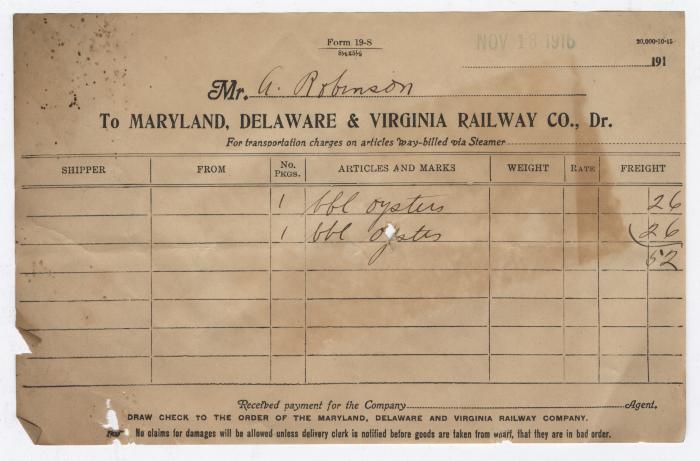 Form 19-S
8½x5½
20,000-10-15
NOV 13 1916
191
Mr. A. Robinson
To MARYLAND, DELAWARE & VIRGINIA RAILWAY CO., Dr.
For transportation charges on articles way-billed via Steamer
SHIPPER FROM No. PKGS. ARTICLES AND MARKS WEIGHT RATE FREIGHT
1 bbl oysters 26
1 bbl oysters 26
52
Received payment for the Company Agent.
DRAW CHECK TO THE ORDER OF THE MARYLAND, DELAWARE AND VIRGINIA RAILWAY COMPANY.
No claims for damages will be allowed unless delivery clerk is notified before goods are taken from wharf, that they are in bad order.